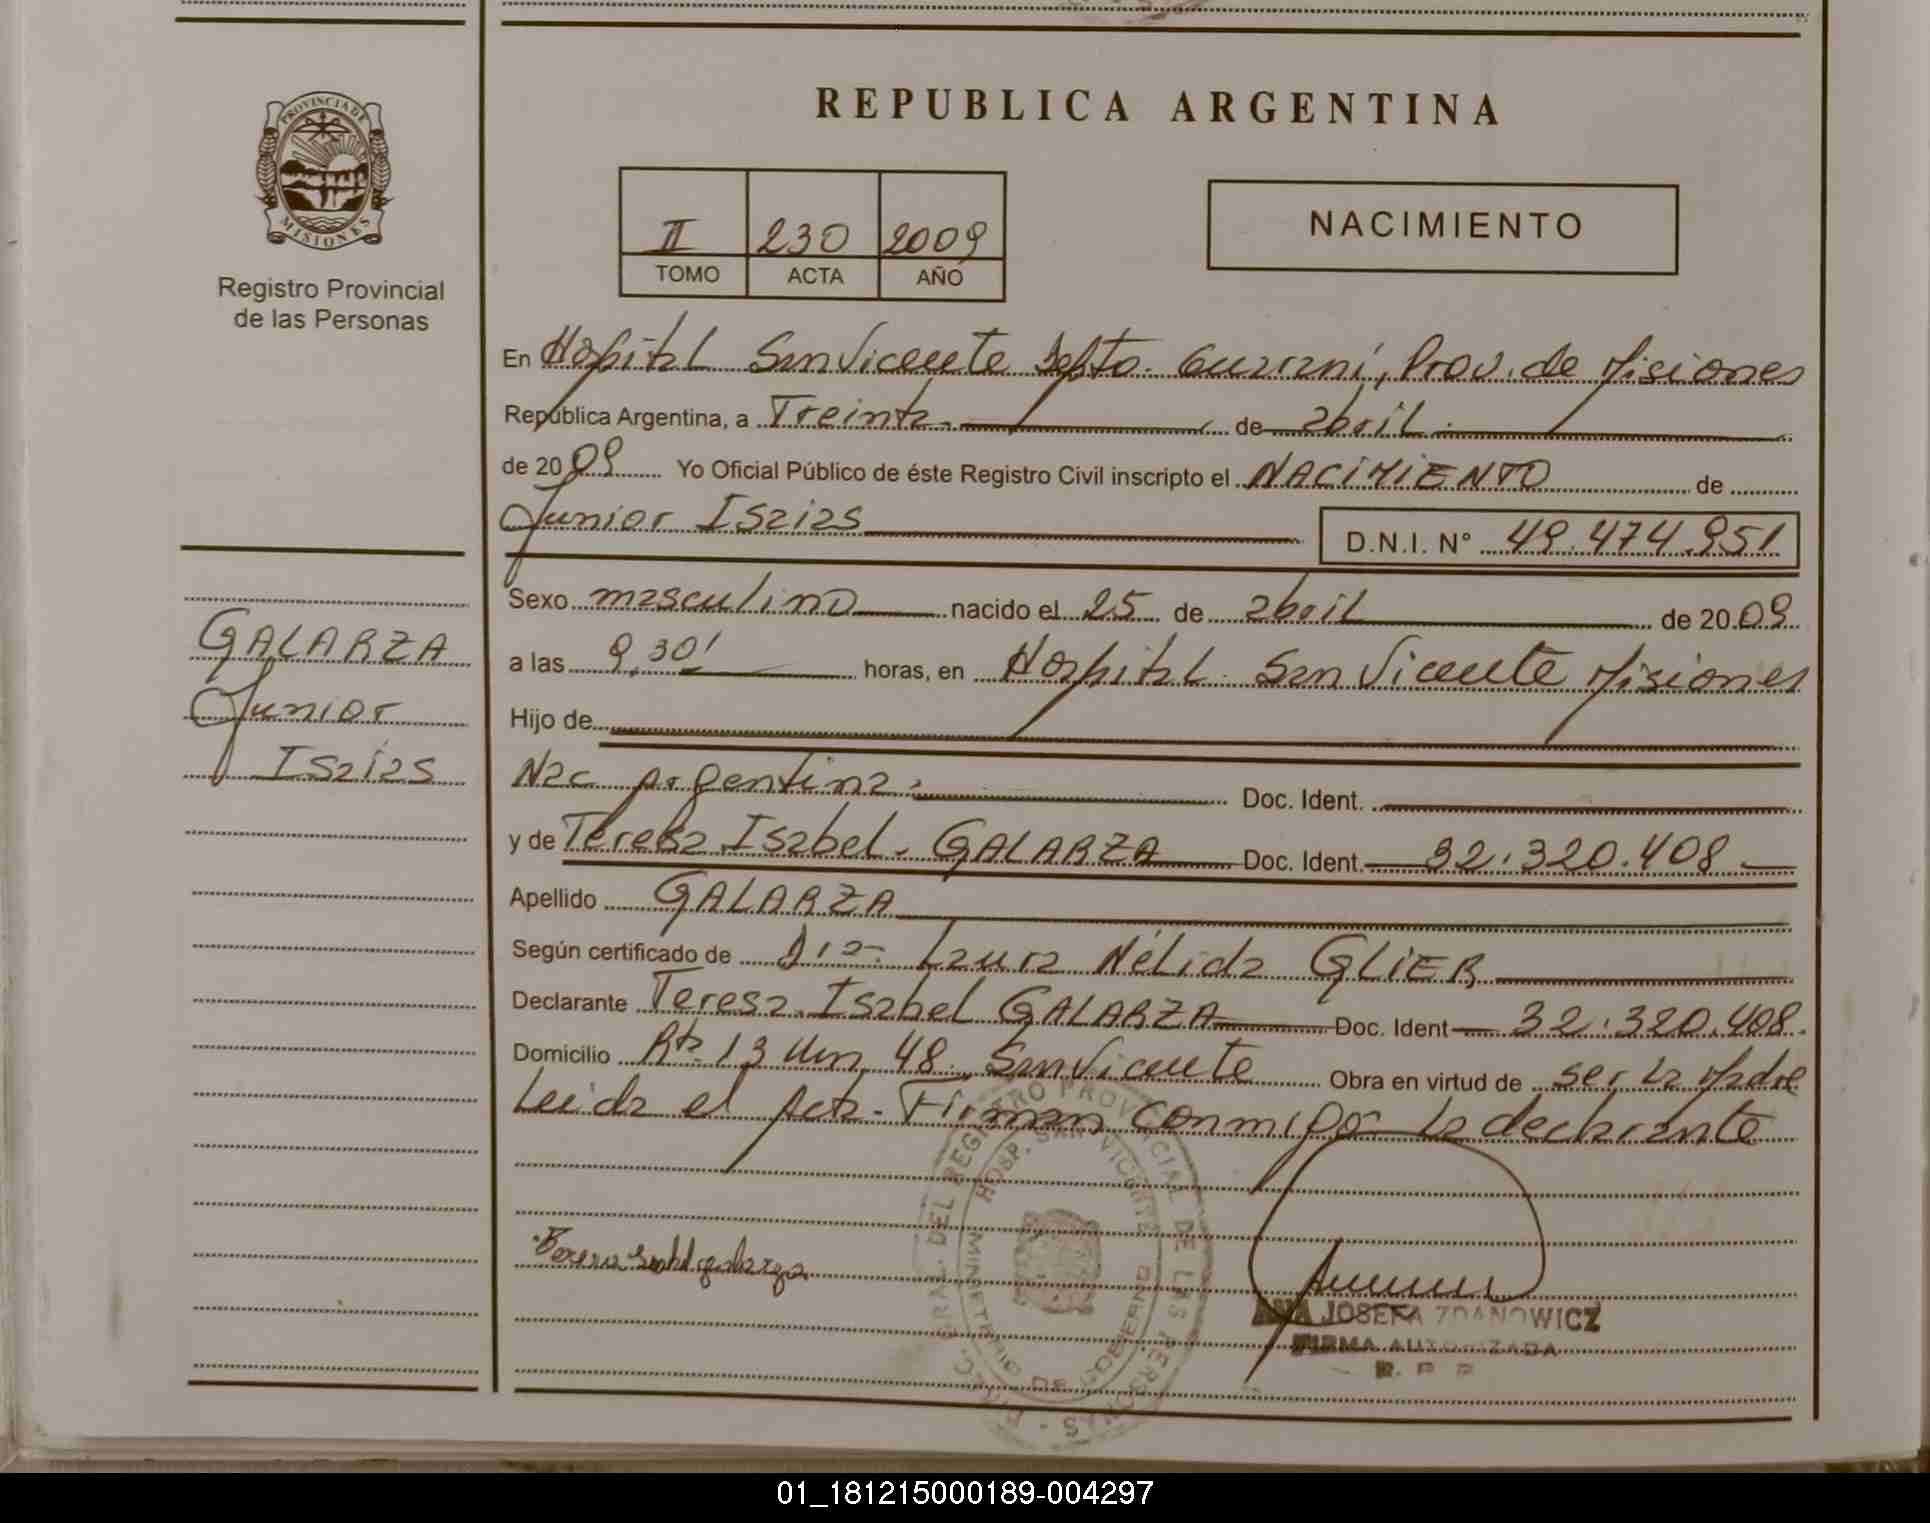 REPUBLICA ARGENTINA
PROVINCIA DE
MISIONES
Registro Provincial
de las Personas
II 230 2009
TOMO ACTA AÑO
NACIMIENTO
En Hospital San Vicente Depto. Guaraní, Prov. de Misiones
República Argentina, a Treinta. de abril.
de 2009 Yo Oficial Público de éste Registro Civil inscripto el NACIMIENTO de
Junior Isaias
D.N.I. N° 49.474.951
Sexo masculino nacido el 25 de abril de 2009
a las 9,30' horas, en Hospital San Vicente Misiones
Hijo de
Nac. Argentina. Doc. Ident.
y de Teresa Isabel. GALARZA Doc. Ident. 32.320.408.
Apellido GALARZA
Según certificado de Dra. Laura Nélida GLIER
Declarante Teresa Isabel GALARZA Doc. Ident 32.320.408.
Domicilio Rta. 13 Km 48. San Vicente Obra en virtud de ser la Madre
Leida el Acta. Firman conmigo la declarante
GALARZA
Junior
Isaias
DEL REGISTRO PROVINCIAL DE LAS PERSONAS
HOSP. SAN VICENTE
MINISTERIO DE GOBIERNO
ANA JOSEFA ZDANOWICZ
FIRMA AUTORIZADA
R. P. P
01_181215000189-004297